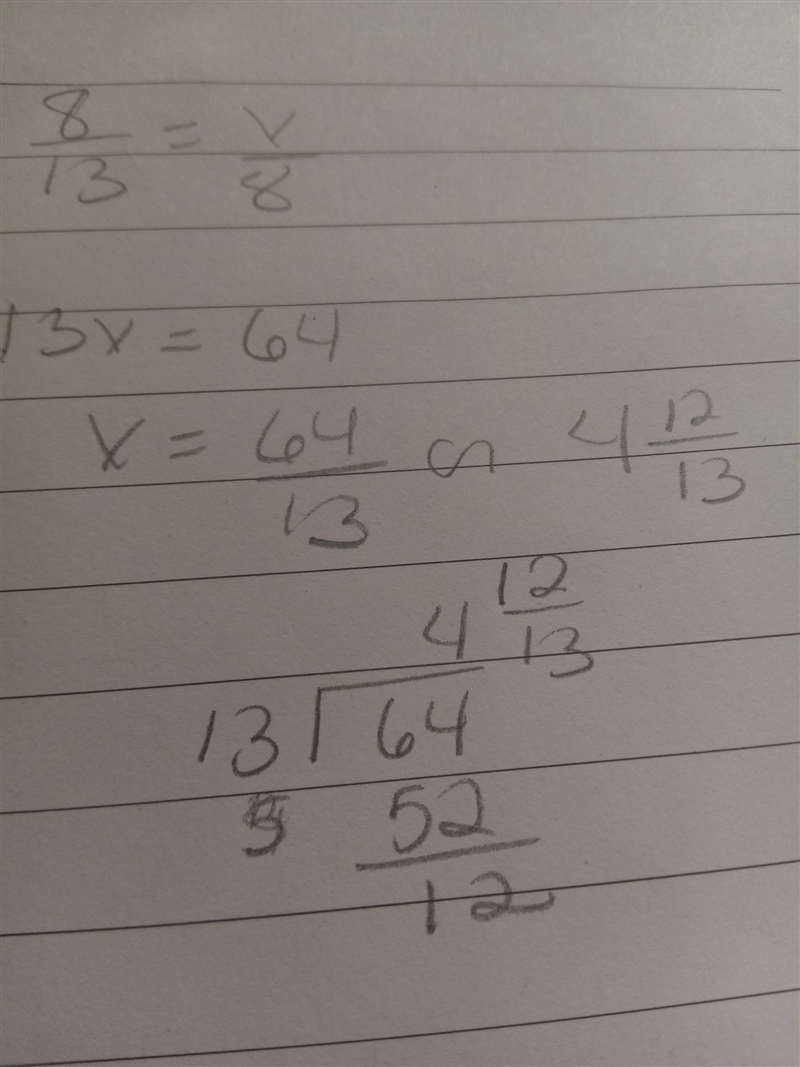 8/13 = x/8
13x = 64
x = 64/13 or 4 12/13
4 12/13
13 ⟌ 64
52
12